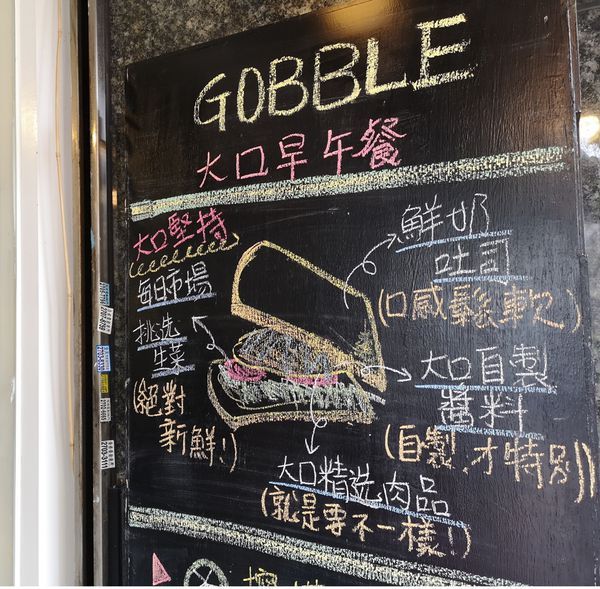 GOBBLE
大口早午餐
大口堅持
每日市場
挑选
生菜
(絕對
新鮮!)
鮮奶
吐司
(口感鬆軟)
大口自製
醬料
(自製,才特別)
大口精选肉品
(就是要不一樣!)